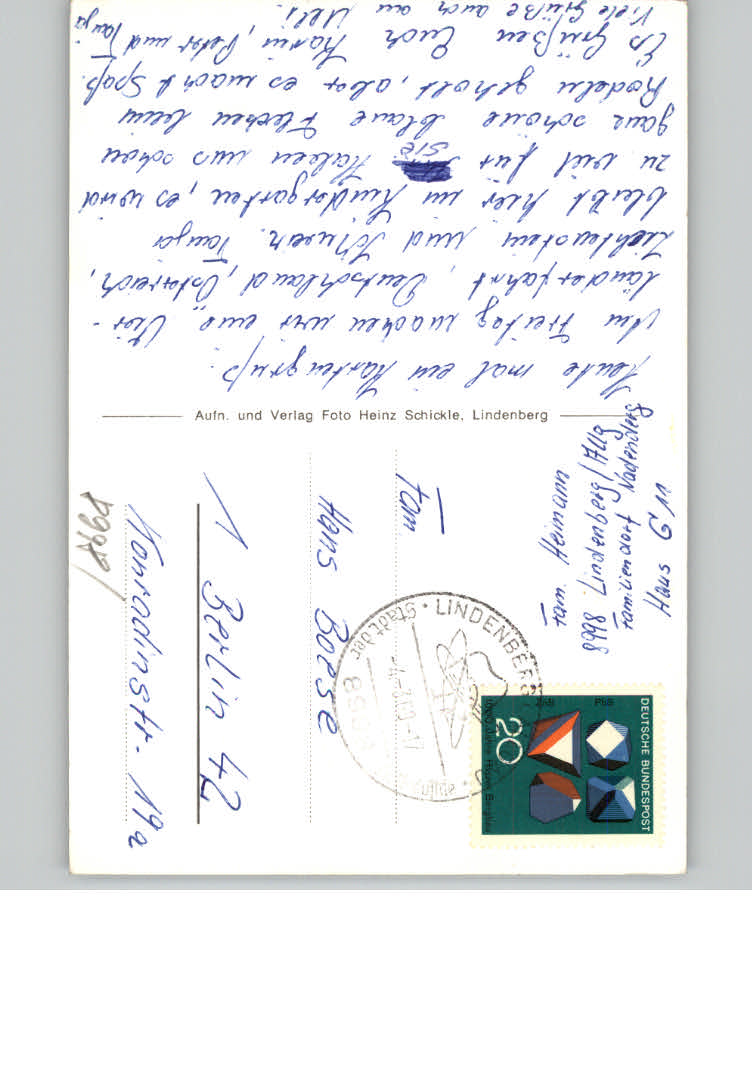 Heute mal ein Kartengruß.
Am Freitag machen wir eine „Vier-
länderfahrt", Deutschland, Österreich,
Lichtenstein und Schweiz. Tanja
bleibt hier im Kindergarten, es wird
zu viel für Sie. Haben uns schon
ganz schöne blaue Flecken beim
Rodeln geholt, aber es macht Spaß.
Es Grüßen Euch Karin, Peter und Tanja
Viele Grüße auch an Uli.
Aufn. und Verlag Foto Heinz Schickle, Lindenberg
Fam. Heimann
8998 Lindenberg/Allg
Familiendorf Nadenberg
Haus G 11
Fam.
Hans Boese
1 Berlin 42
Konradinstr. 19a
LINDENBERG
Stadt der
8998
DEUTSCHE BUNDESPOST
20
ZnS
PbS